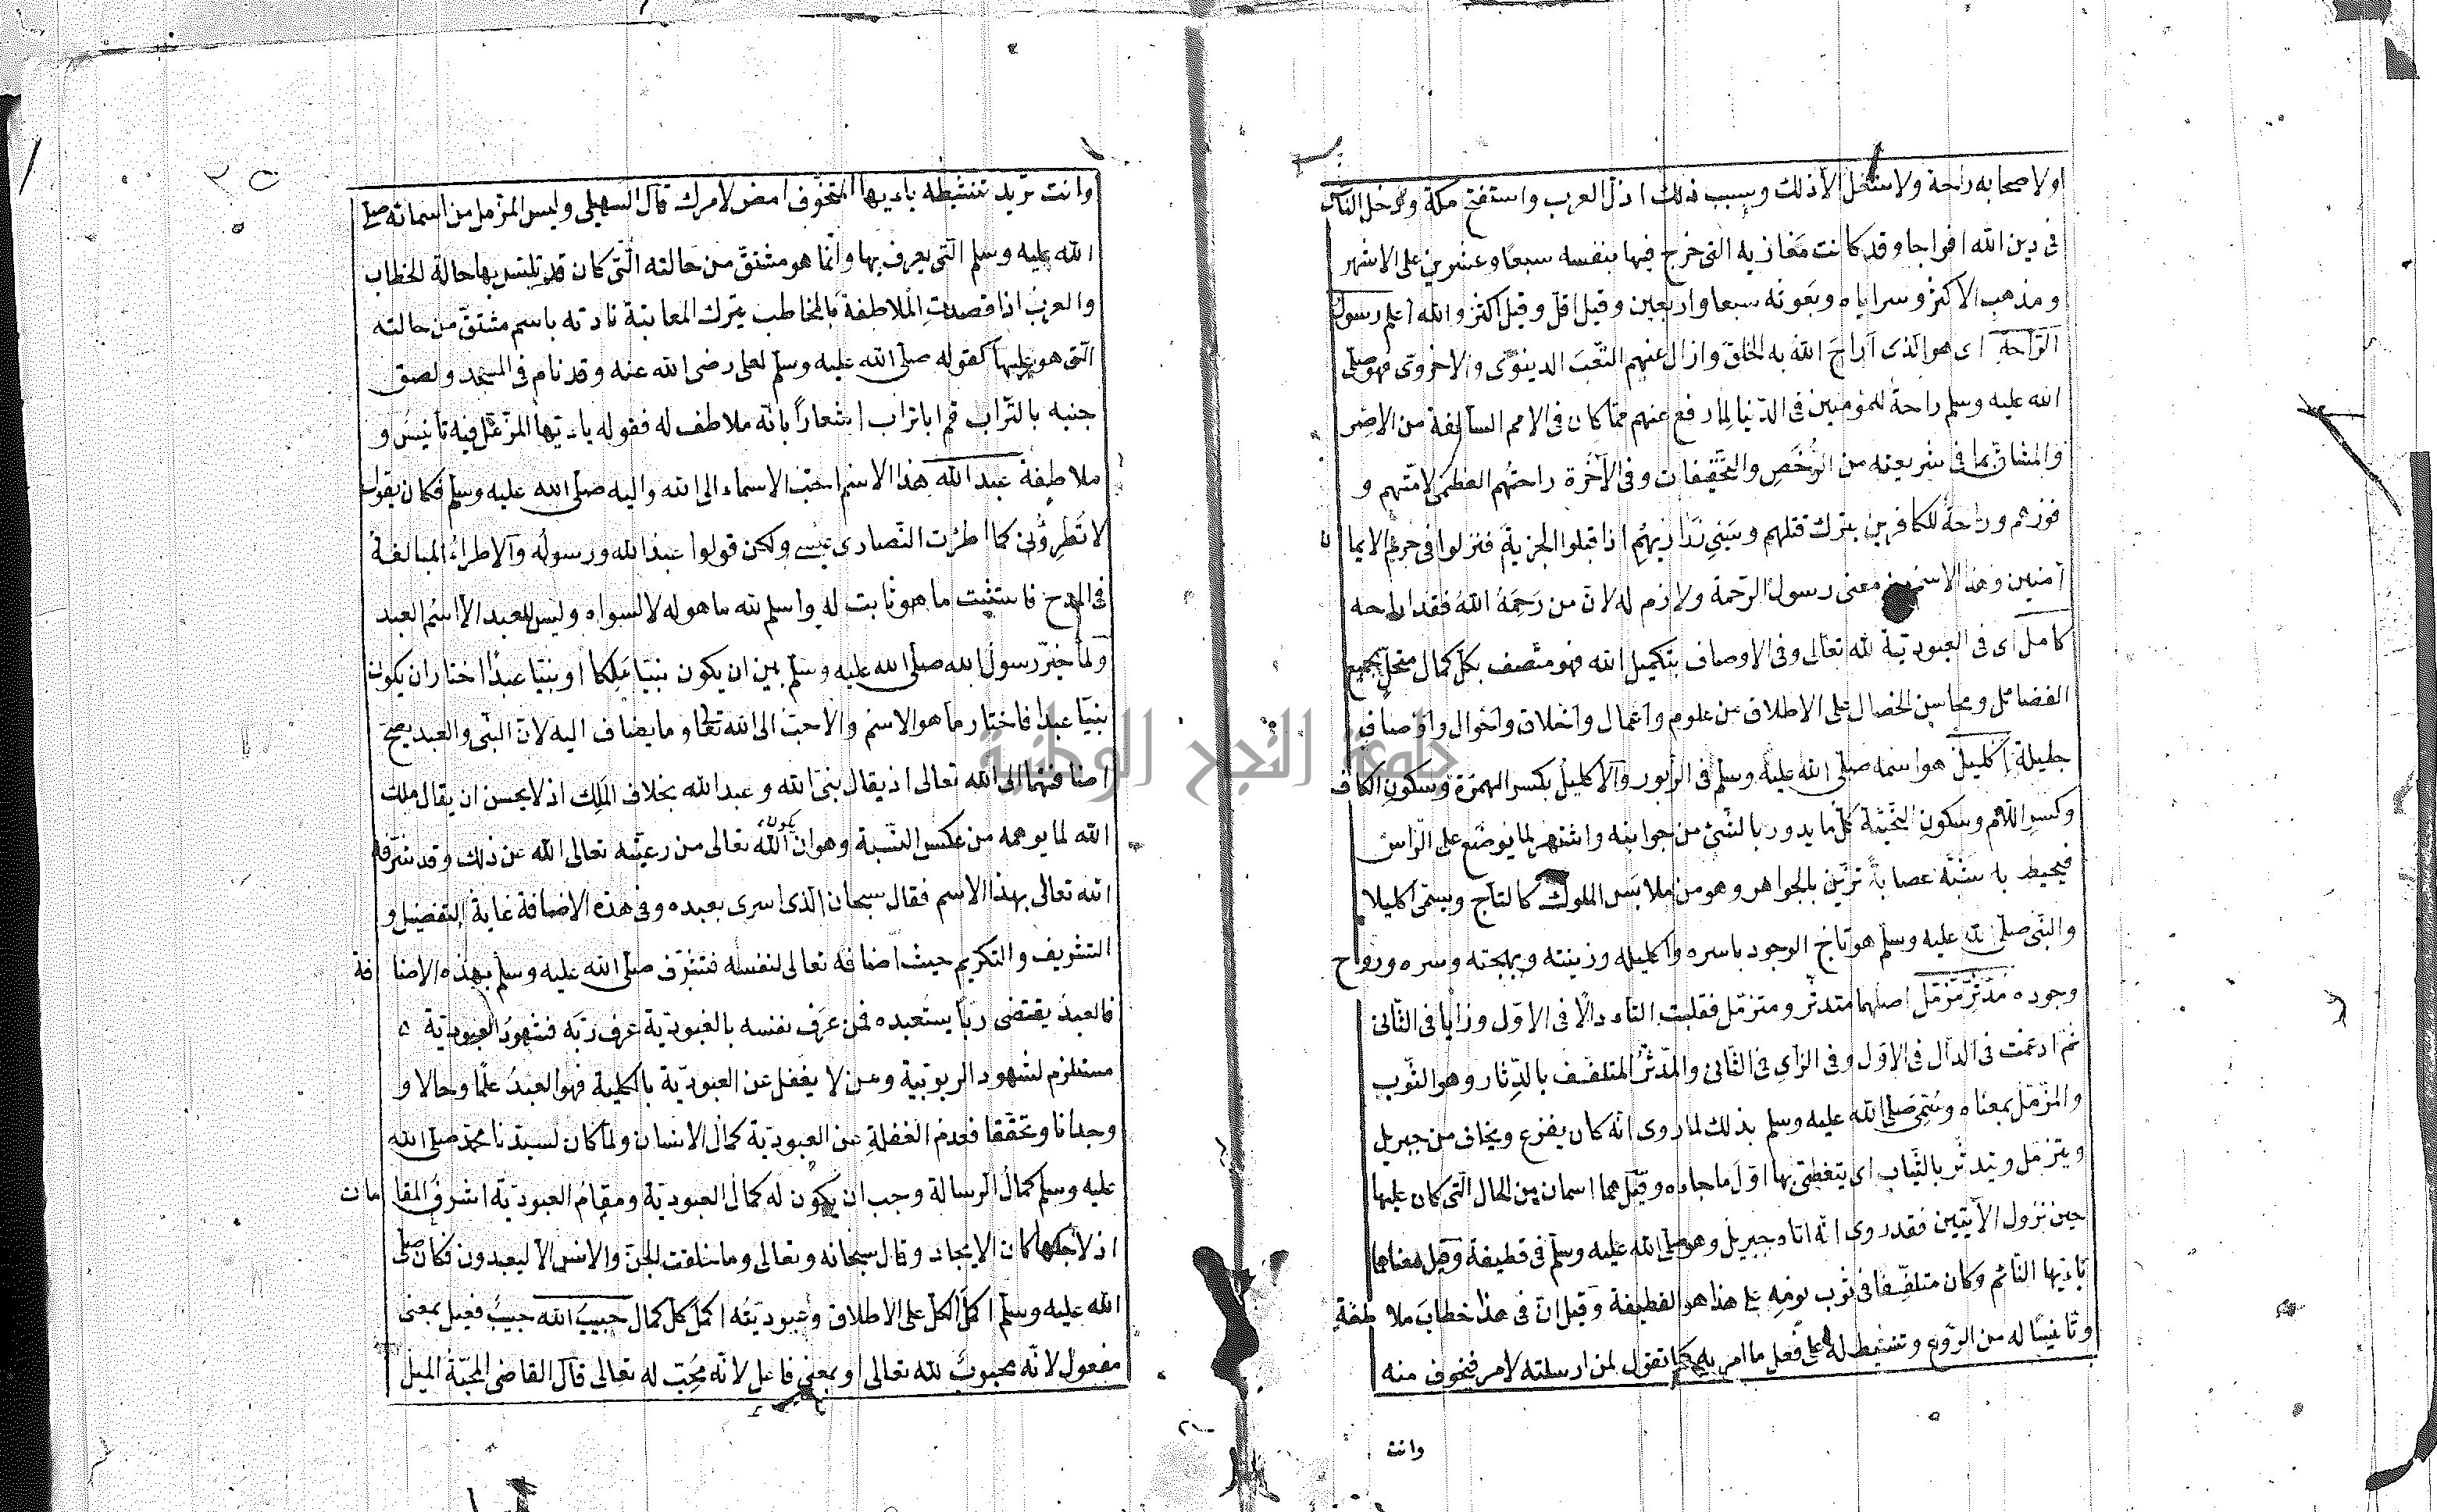 اولاصحابه راحة ولاشغل الا ذلك وبسبب ذلك اذل العرب واستفتح مكة ودخل الناس
فى دين الله افواجا وقد كانت مغازيه التى خرج فيها بنفسه سبعا وعشرين على الاشهر
ومذهب الاكثر وسراياه وبعوثه سبعا واربعين وقيل اقل وقيل اكثر والله اعلم رسول
الراحة اى هو الذى اراح الله به الخلق وازال عنهم التعب الدينوى والاخروى فهو صلى
الله عليه وسلم راحة للمؤمنين فى الدنيا لما رفع عنهم مما كان فى الامم السالفة من الاصر
والمشاق بما فى شريعته من الرخص والتخفيفات وفى الآخرة راحتهم العظمى لامنهم و
فوزهم وراحة للكافرين بترك قتلهم وسبى ذراريهم اذا قبلوا الجزية فنزلوا فى حرم الايما ن
آمنين وهذا الاسم معنى رسول الرحمة ولازم له لان من رحمه الله فقد اراحه
كامل اى فى العبودية لله تعالى وفى الاوصاف بتكميل الله فهو متصف بكل كمال متحل بجميع
الفضائل ومحاسن الخصال على الاطلاق من علوم واعمال واخلاق واحوال واوصاف
جليلة اكليل هو اسمه صلى الله عليه وسلم فى الزبور والاكليل بكسر الهمزة وسكون الكاف
وكسر اللام وسكون التحتية كل ما يدور بالشئ من جوانبه واشتهر لما يوضع على الراس
فيحيط به شبه عصابة تزين بالجواهر وهو من ملابس الملوك كالتاج ويسمى اكليلا
والنبى صلى لله عليه وسلم هو تاج الوجود باسره واكليله وزينته وبهجته وسره وروح
وجوده مدثر مزمل اصلهما متدثر ومتزمل فقلبت التاء دالا فى الاول وزايا فى الثانى
ثم ادغمت فى الدال فى الاول وفى الزاى فى الثانى والمدثر المتلفف بالدثار وهو الثوب
والمزمل بمعناه وسمى صلى الله عليه وسلم بذلك لما روى انه كان يفزع ويخاف من جبريل
ويتزمل ويتدثر بالثياب اى يتغطى بها اول ما جاءه وقيل هما اسمان من الحال التى كان عليها
حين نزول الآيتين فقد روى انه اتاه جبريل وهو صلى الله عليه وسلم فى قطيفة وقيل معناهما
ياءيها النائم وكان متلففا فى ثوب نومه على هذا هو القطيفة وقيل ان فى هذا خطاب ملا طفة
وتأنيسا له من الروع وتنشيط له على فعل ما امر به كما تقول لمن ارسلته لامر فتخوف منه
وانت
وانت تريد تنشيطه ياءيها المتخوف امض لامرك قال السهيلى وليس المزمل من اسمائه صلى
الله عليه وسلم التى يعرف بها وانما هو مشتق من حالته التى كان قد تلبس بها حالة الخطاب
والعرب اذا قصدت الملاطفة بالمخاطب بترك المعاتبة نادته باسم مشتق من حالته
التى هو عليها كقوله صلى الله عليه وسلم لعلى رضى الله عنه وقد نام فى المسجد ولصق
جنبه بالتراب قم ابا تراب اشعارا بانه ملاطف له فقوله ياءيها المزمل فيه تأنيس و
ملاطفة عبد الله هذا الاسم احب الاسماء الى الله واليه صلى الله عليه وسلم فكان يقول
لا تطرونى كما اطرت النصارى عيسى ولكن قولوا عبد الله ورسوله والاطراء المبالغة
فى المدح فاستثبت ما هو ثابت له واسلم لله ما هو له لا لسواه وليس للعبد الا اسم العبد
ولما خير رسول الله صلى الله عليه وسلم بين ان يكون نبيا ملكا او نبيا عبدا اختار ان يكون
نبيا عبدا فاختار ما هو الاسم والاحب الى الله تعالى وما يضاف اليه لان النبى والعبد يصح
اضافتهما الى الله تعالى اذ يقال نبى الله وعبد الله بخلاف الملك اذ لا يحسن ان يقال ملك
الله لما يوهمه من عكس النسبة وهو ان يكون الله تعالى من رعيته تعالى الله عن ذلك وقد شرفه
الله تعالى بهذا الاسم فقال سبحان الذى اسرى بعبده وفى هذه الاضافة غاية التفضيل و
التشريف والتكريم حيث اضافه تعالى لنفسه فتشرف صلى الله عليه وسلم بهذه الاضا فة
فالعبد يقتضى ربا يستعبده فمن عرف نفسه بالعبودية عرف ربه فشهود العبودية
مستلزم لشهود الربوبية وعن لا يغفل عن العبودية بالكلية فهو العبد علما وحالا و
وجدانا وتحققا فعدم الغفلة عن العبودية كمال الانسان ولما كان لسيدنا محمد صلى الله
عليه وسلم كمال الرسالة وجب ان يكون له كمال العبودية ومقام العبودية اشرف المقا مات
اذ لاجلها كان الايجاد وقال سبحانه وتعالى وما خلقت الجن والانس الا ليعبدون فكان صلى
الله عليه وسلم اكمل الكل على الاطلاق وعبوديته اكمل كل كمال حبيب الله حبيب فعيل بمعنى
مفعول لانه محبوب لله تعالى او بمعنى فاعل لانه محب له تعالى قال القاضى المحبة الميل
جامعة النجاح الوطنية